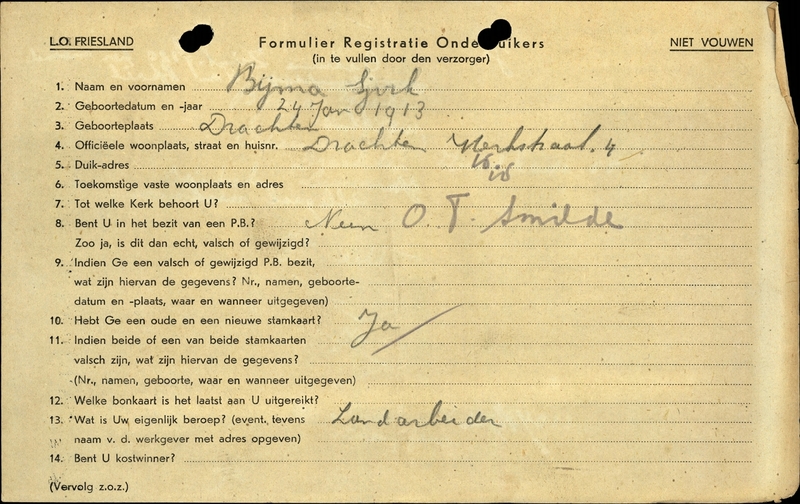 L.O. FRIESLAND
Formulier Registratie Onderduikers
NIET VOUWEN
(in te vullen door den verzorger)
1. Naam en voornamen Bijma Sjirk
2. Geboortedatum en -jaar 24 Jan 1913
3. Geboorteplaats Drachten
4. Officiëele woonplaats, straat en huisnr. Drachten 4
5. Duik-adres
6. Toekomstige vaste woonplaats en adres
7. Tot welke Kerk behoort U?
8. Bent U in het bezit van een P.B.? Neen O.T. Smilde
Zoo ja, is dit dan echt, valsch of gewijzigd?
9. Indien Ge een valsch of gewijzigd P.B. bezit,
wat zijn hiervan de gegevens? Nr., namen, geboorte-
datum en -plaats, waar en wanneer uitgegeven)
10. Hebt Ge een oude en een nieuwe stamkaart? Ja
11. Indien beide of een van beide stamkaarten
valsch zijn, wat zijn hiervan de gegevens?
(Nr., namen, geboorte, waar en wanneer uitgegeven)
12. Welke bonkaart is het laatst aan U uitgereikt?
13. Wat is Uw eigenlijk beroep? (event. tevens Landarbeider
naam v. d. werkgever met adres opgeven)
14. Bent U kostwinner?
(Vervolg z.o.z.)